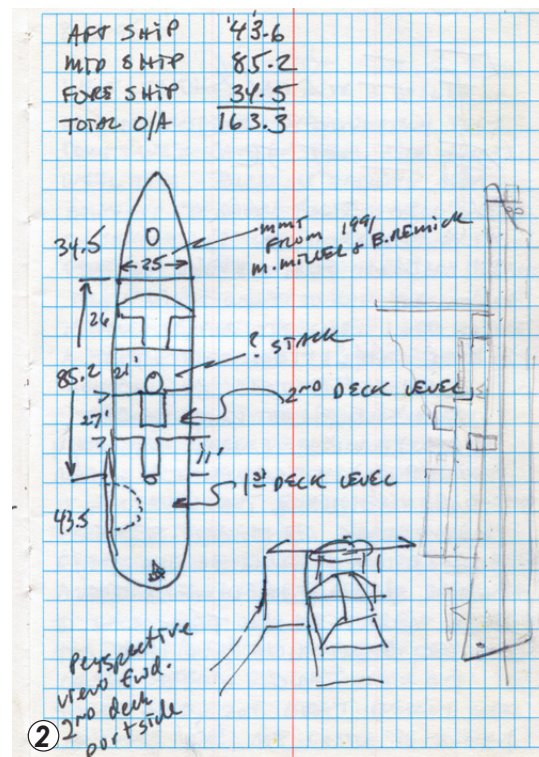 AFT SHIP 43.6
MID SHIP 85.2
FORE SHIP 34.5
TOTAL O/A 163.3
34.5
mmt
FROM 1991
M. MILLER & B. REMICK
25
26
? STACK
85.2
21'
2ND DECK LEVEL
27'
11'
1st DECK LEVEL
43.5
Perspective
view fwd.
2ND deck
portside
2